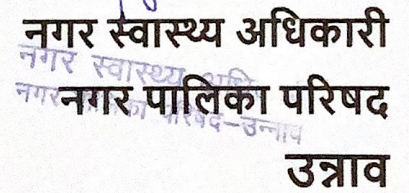 नगर स्वास्थ्य अधिकारी
नगर स्वास्थ्य
नगर पालिका परिषद
नगर परिषद-उन्नाव
उन्नाव